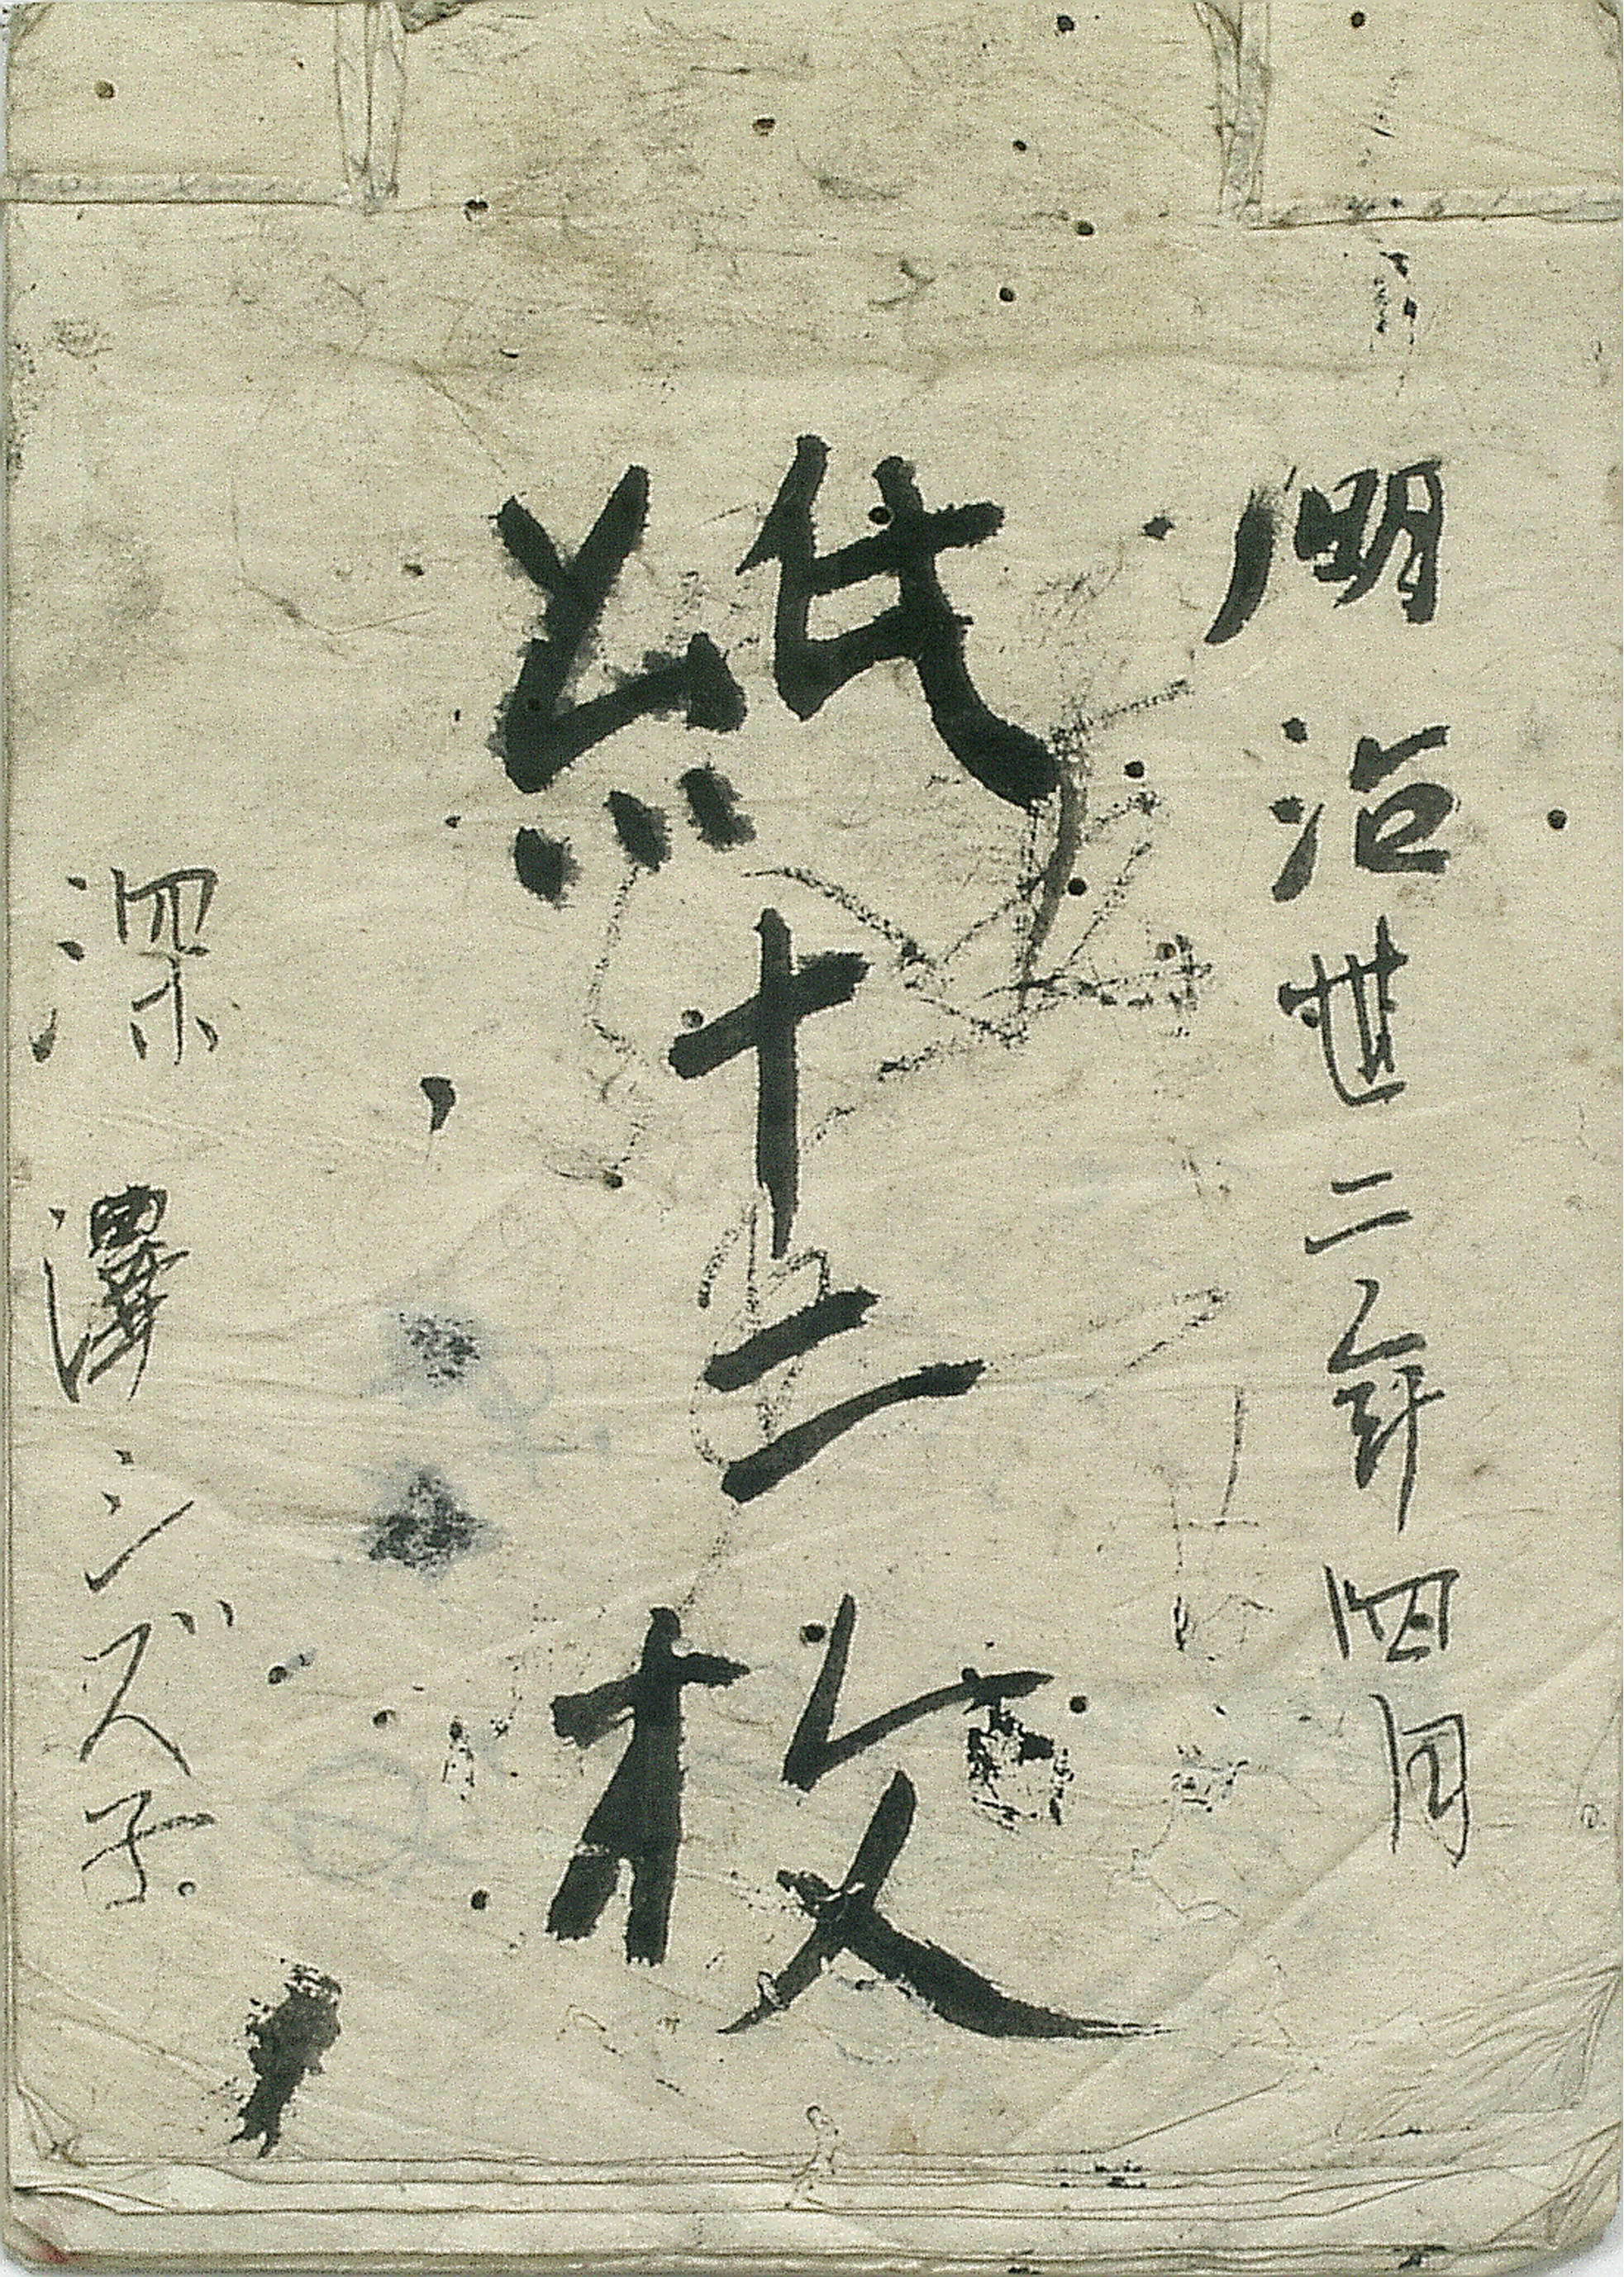 明治丗二年四月
紙十二枚
深澤シズ子